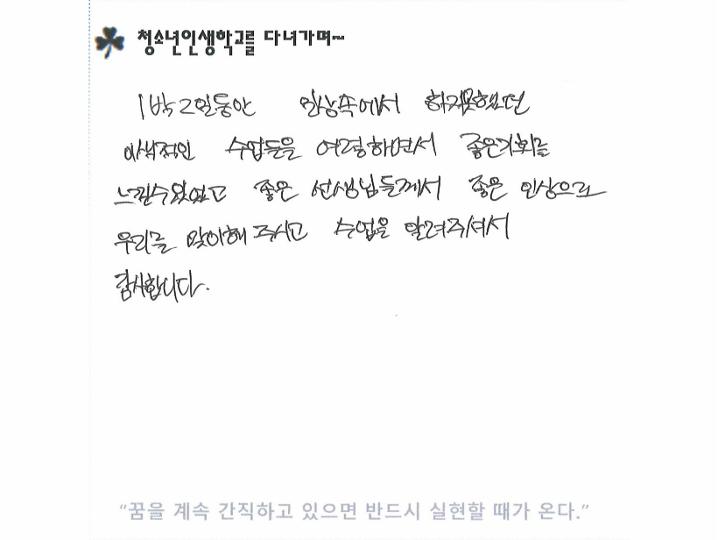 청소년인생학교를 다녀가며~
1박 2일동안 일상속에서 하지못했던
이색적인 수업들을 여경하면서 좋은기회를
느낄수있었고 좋은 선생님들께서 좋은 인상으로
우리를 맞이해 주시고 수업을 알려주셔서
감사합니다.
“꿈을 계속 간직하고 있으면 반드시 실현할 때가 온다.”